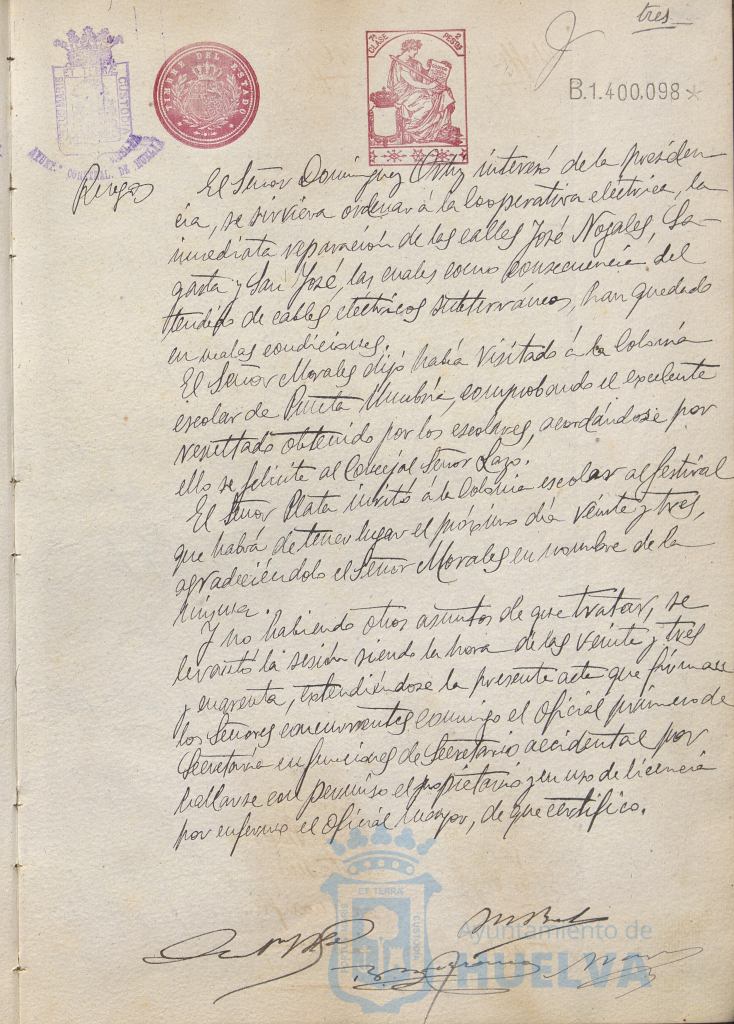 tres
7ª CLASE
2 PESETAS
TIMBRE DEL ESTADO
CUSTODIA
AYUNT.º CONST.NAL DE HUELVA
B.1.400.098
Ruegos
El Señor Dominguez Ortiz interesó de la presiden-
cia, se sirviera ordenar á la Cooperativa eléctrica, la
inmediata reparación de las calles José Nogales, Sa-
gasta y San José, las cuales como consecuencia del
tendido de cables electricos subterráneos, han quedado
en malas condiciones.
El Señor Morales dijó había visitado á la Colonia
escolar de Punta Umbría, comprobando el excelente
resultado obtenido por los escolares, acordándose por
ello se felicite al Concejal Señor Lazo.
El Señor Plata invitó á la Colonia escolar al festival
que habrá de tener lugar el próximo día veinte y tres,
agradeciéndolo el Señor Morales en nombre de la
misma.
Y no habiendo otros asuntos de que tratar, se
levantó la sesión siendo la hora de las veinte y tres
y cuarenta, extendiéndose la presente acta que firman
los Señores concurrentes conmigo el Oficial primero de
Secretaría en funciones de Secretario accidental por
hallarse con permiso el propietario y en uso de licencia
por enfermo el Oficial mayor, de que certifico.
ET TERRÆ
CUSTODIA
Ayuntamiento de
HUELVA